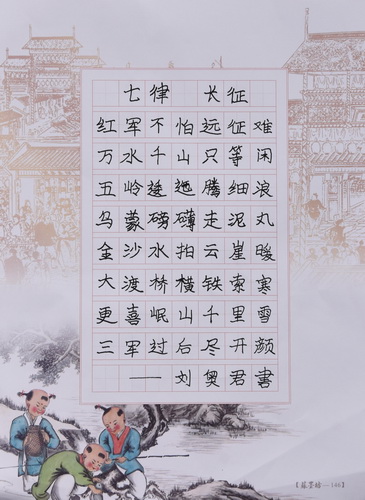 七律 长征
红军不怕远征难
万水千山只等闲
五岭逶迤腾细浪
乌蒙磅礴走泥丸
金沙水拍云崖暖
大渡桥横铁索寒
更喜岷山千里雪
三军过后尽开颜
——刘奥君書